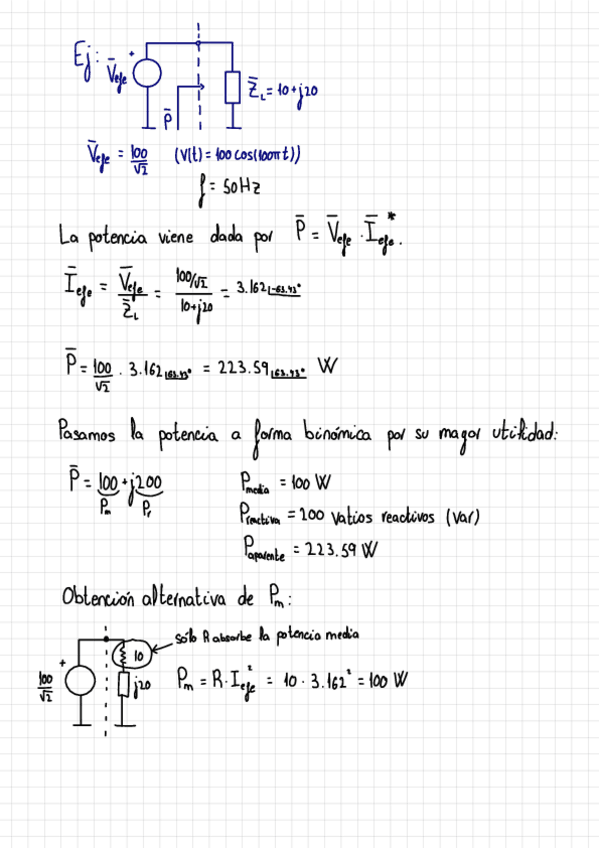 Ej: V̅efe + P̅ Z̅L = 10+j20
V̅efe = 100/√2 (V(t) = 100 cos(100πt))
f = 50Hz
La potencia viene dada por P̅ = V̅efe · I̅efe*.
I̅efe = V̅efe/Z̅L = (100/√2)/(10+j20) = 3.162∟-63.43°
P̅ = 100/√2 · 3.162∟63.43° = 223.59∟63.43° W
Pasamos la potencia a forma binómica por su mayor utilidad:
P̅ = 100 + j200 Pmedia = 100 W
Pm Pr Preactiva = 200 Vatios reactivos (Var)
Paparente = 223.59 W
Obtención alternativa de Pm:
sólo R absorbe la potencia media
+ 10
100/√2 j20 Pm = R · Iefe² = 10 · 3.162² = 100 W